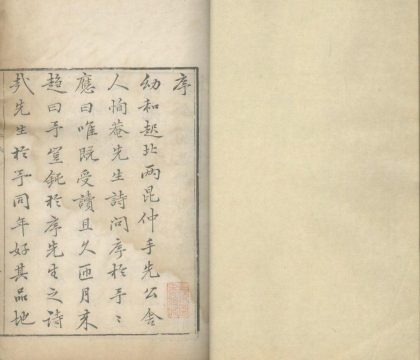 序
幼和越北兩昆仲手先公舍
人恂菴先生詩問序於予予
應曰唯既受讀且久匝月來
趨曰予寔鈍於序先生之詩
哉先生於予同年好其品地